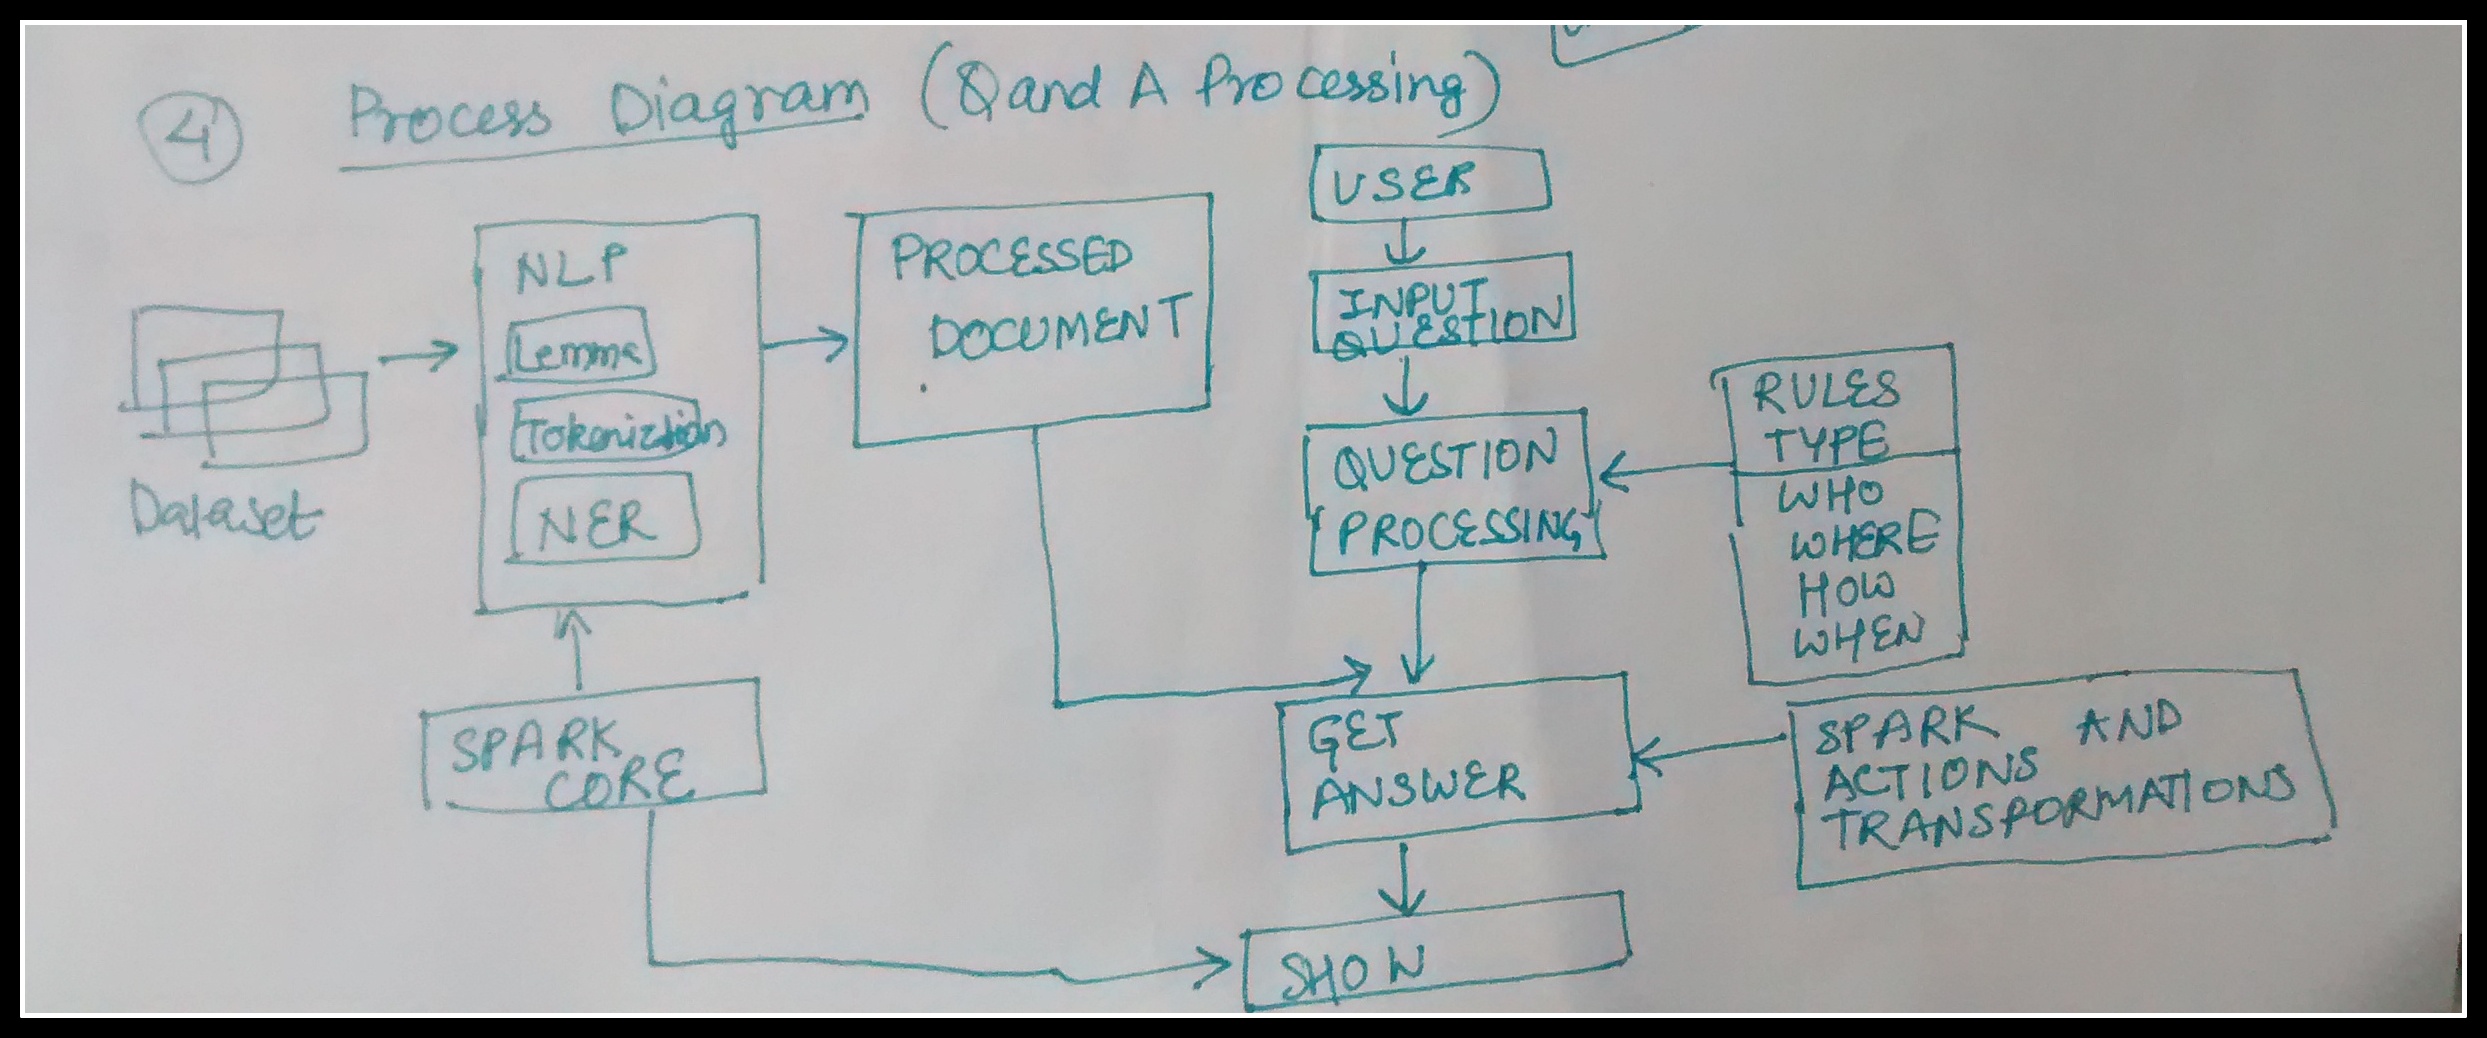 4
Process Diagram (Q and A Processing)
USER
INPUT
QUESTION
NLP
Lemma
Tokeniztion
NER
PROCESSED
DOCUMENT
Dataset
QUESTION
PROCESSING
RULES
TYPE
WHO
WHERE
HOW
WHEN
SPARK
CORE
GET
ANSWER
SPARK AND
ACTIONS
TRANSFORMATIONS
SHOW